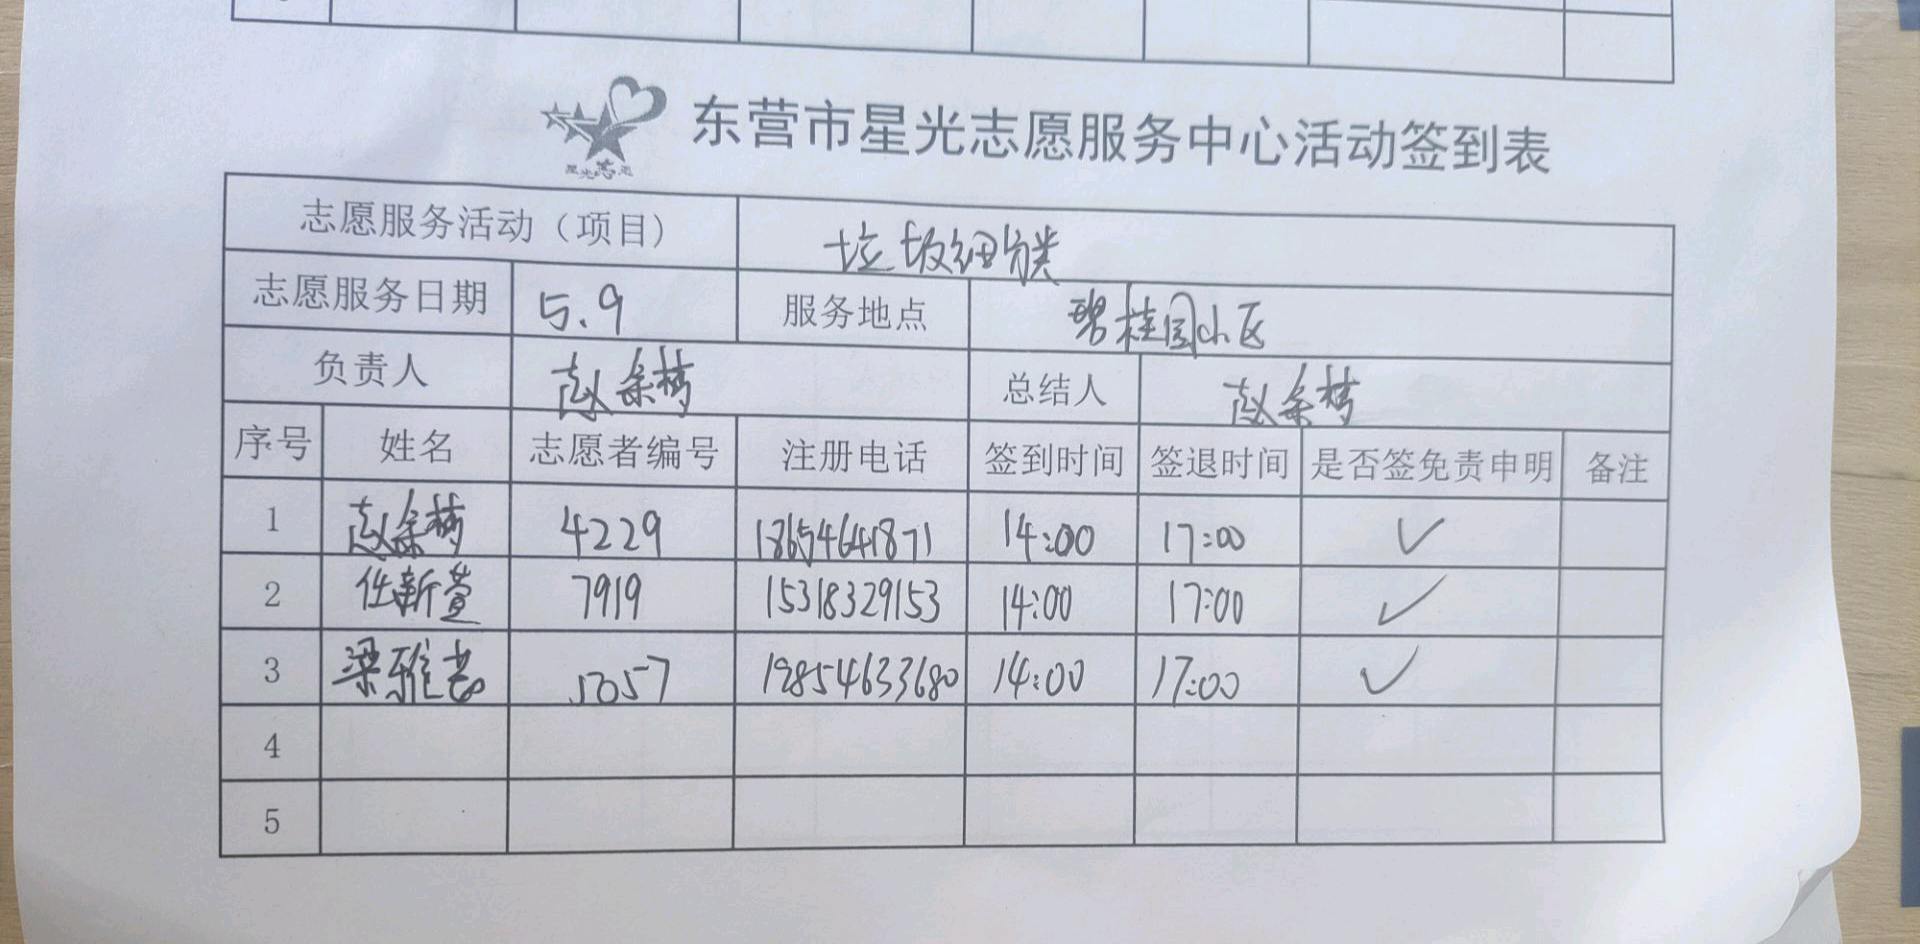 东营市星光志愿服务中心活动签到表
志愿服务活动（项目） 垃圾细分类
志愿服务日期 5.9 服务地点 碧桂园小区
负责人 赵余梅 总结人 赵余梅
序号 姓名 志愿者编号 注册电话 签到时间 签退时间 是否签免责申明 备注
1 赵余梅 4229 18654641871 14:00 17:00 ✓
2 任新萱 7919 15318329153 14:00 17:00 ✓
3 梁雅 5057 19854633680 14:00 17:00 ✓
4
5